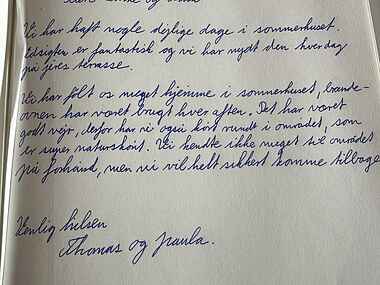 Vi har haft nogle dejlige dage i sommerhuset.
Udsigten er fantastisk og vi har nydt den hver dag
på jeres terasse.
Vi har følt os meget hjemme i sommerhuset, brænde-
ovnen har været brugt hver aften. Det har været
godt vejr, derfor har vi også kørt rundt i området, som
er super naturskønt. Vi kendte ikke meget til området
på forhånd, men vi vil helt sikkert komme tilbage
Venlig hilsen
Thomas og Paula.